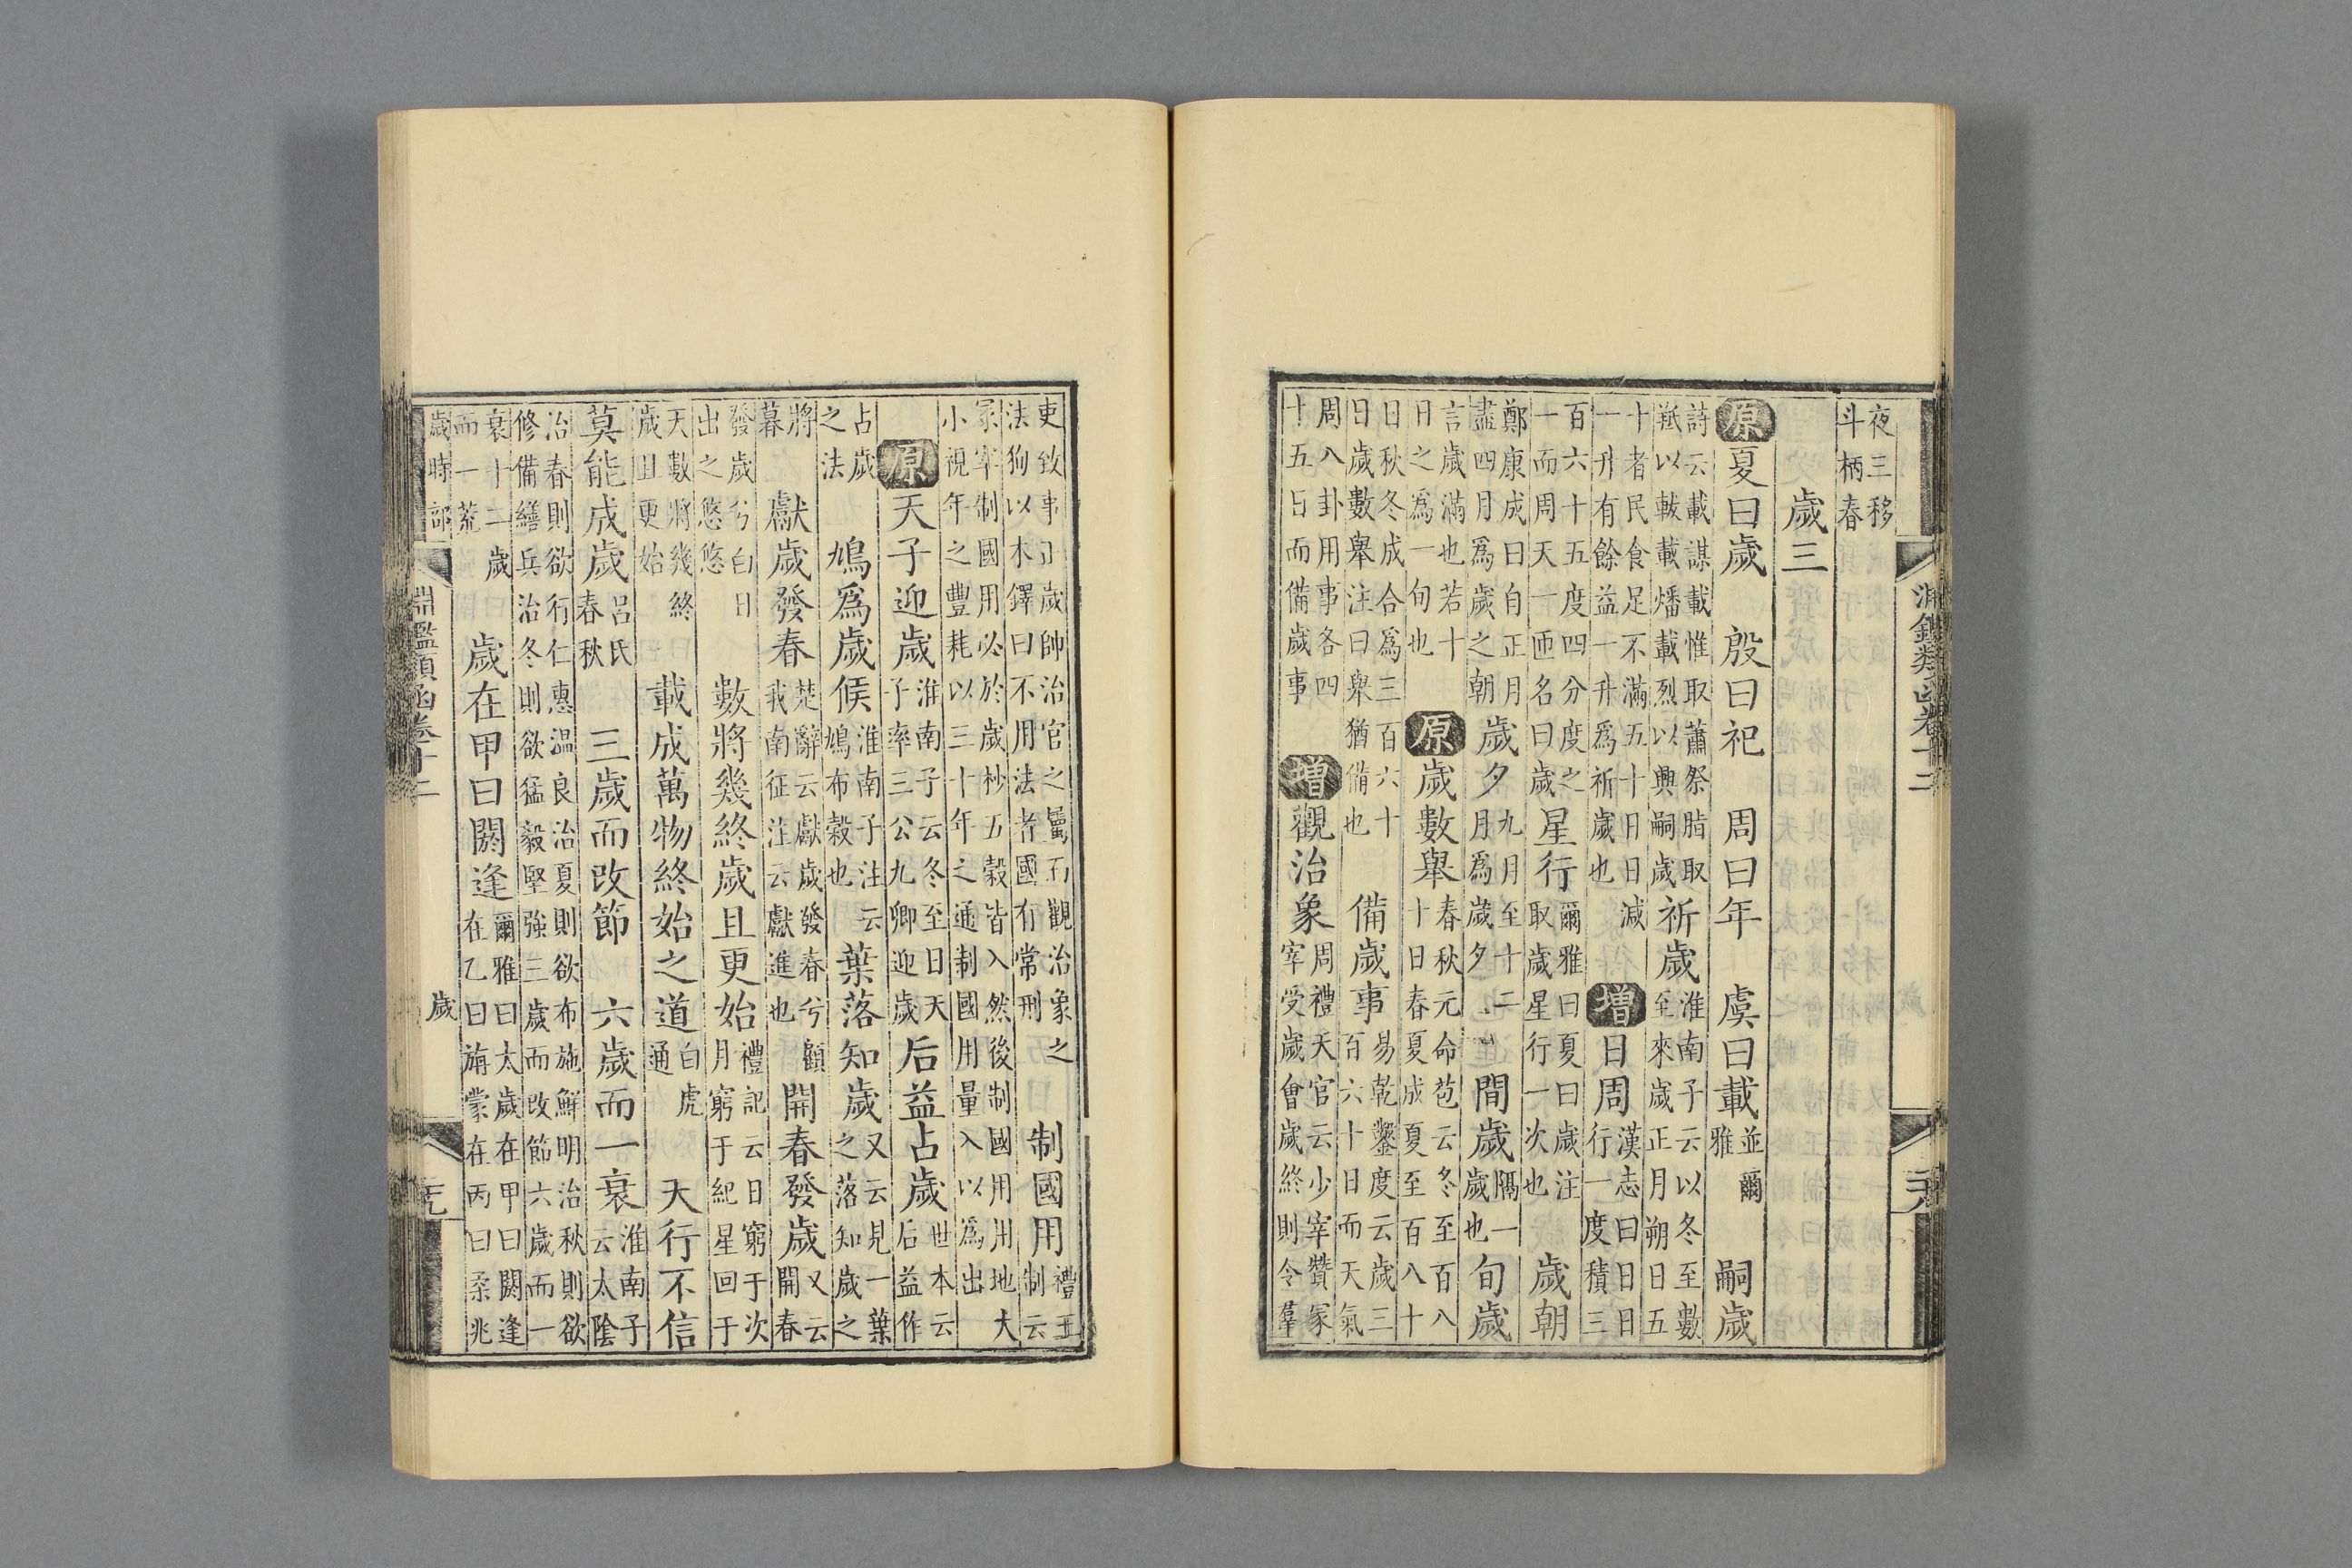 淵鑑類函卷十二
夜三移斗柄春
歲三
原夏曰歲 殷曰祀 周曰年 虞曰載並爾雅 嗣歲
詩云載謀載惟取蕭祭脂取羝以軷載燔載烈以興嗣歲祈歲淮南子云以冬至數至來歲正月朔日五
十者民食足不滿五十日日減一升有餘益一升爲祈歲也 增日周漢志曰日日行一度積三
百六十五度四分度之一而周天一匝名曰歲星行爾雅曰夏曰歲注取歲星行一次也 歲朝
鄭康成曰自正月盡四月爲歲之朝歲夕九月至十二月爲歲夕 間歲隔一歲也 旬歲
言歲滿也若十日之爲一旬也 原歲數舉春秋元命苞云冬至百八十日春夏成夏至百八十
日秋冬成合爲三百六十日歲數舉注曰舉猶備也 備歲事易乾鑿度云歲三百六十日而天氣
周八卦用事各四十五日而備歲事 增觀治象周禮天官云少宰贊冢宰受歲會歲終則令羣
吏致事正歲帥治官之屬而觀治象之法狥以木鐸曰不用法者國有常刑 制國用禮王制云
冢宰制國用必於歲杪五穀皆入然後制國用用地大小視年之豐耗以三十年之通制國用量入以爲出
原天子迎歲淮南子云冬至日天子率三公九卿迎歲后益占歲世本云后益作
占歲之法 鳩爲歲候淮南子注云鳩布穀也 葉落知歲又云見一葉之落知歲之
將暮 獻歲發春楚辭云獻歲發春兮顧我南征注云獻進也 開春發歲又云開春
發歲兮白日出之悠悠 數將幾終歲且更始禮記云日窮于次月窮于紀星回于
天數將幾終歲且更始 載成萬物終始之道白虎通 天行不信
莫能成歲呂氏春秋 三歲而改節 六歲而一衰淮南子云太陰
治春則欲行仁惠溫良治夏則欲布施鮮明治秋則欲修備繕兵治冬則欲猛毅堅強三歲而改節六歲而一
衰十二歲而一荒 歲在甲曰閼逢爾雅曰太歲在甲曰閼逢在乙曰旃蒙在丙曰柔兆
歲時部 淵鑑類函卷十二 歲